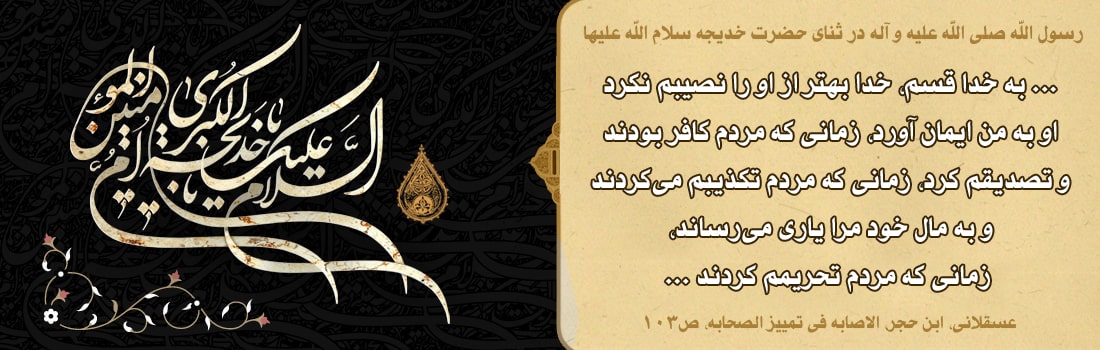 رسول الله صلی الله علیه و آله در ثنای حضرت خدیجه سلام الله علیها
... به خدا قسم، خدا بهتر از او را نصیبم نکرد
او به من ایمان آورد، زمانی که مردم کافر بودند
و تصدیقم کرد، زمانی که مردم تکذیبم می‌کردند
و به مال خود مرا یاری می‌رساند،
زمانی که مردم تحریمم کردند ...
عسقلانی، ابن حجر، الاصابه فی تمییز الصحابه، ص۱۰۳
السلام علیک یا خدیجة الکبری یا ام المؤمنین